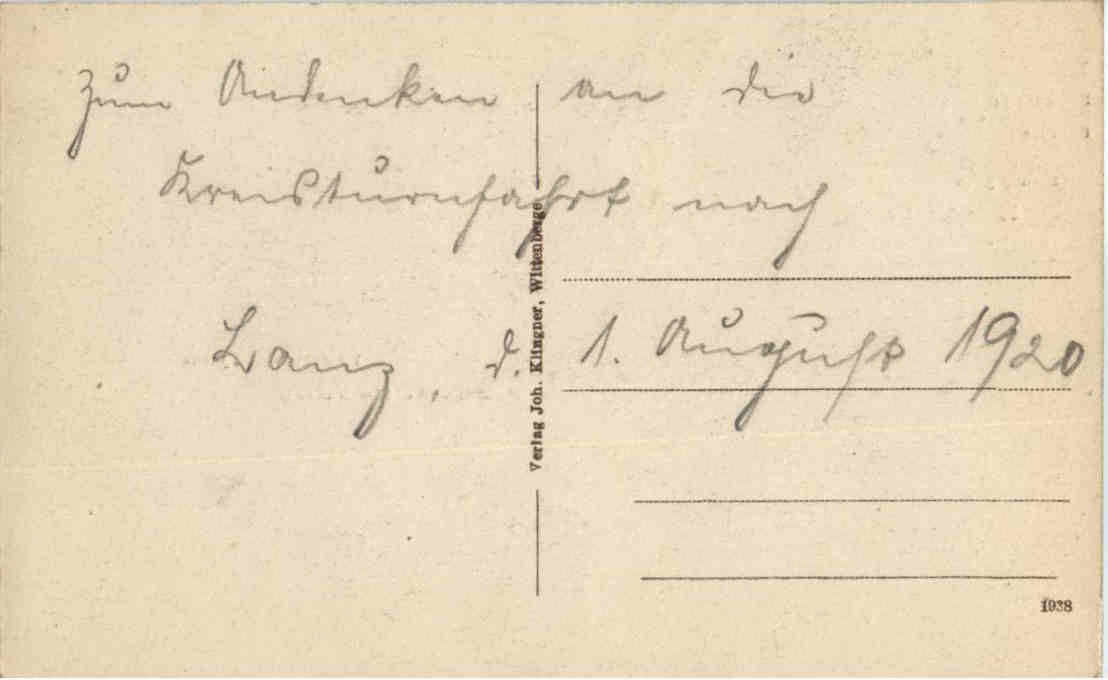 Zum Andenken an die
Kreisturnfahrt nach
Lanz, d. 1. August 1920
Verlag Joh. Klingner, Wittenberge
1938